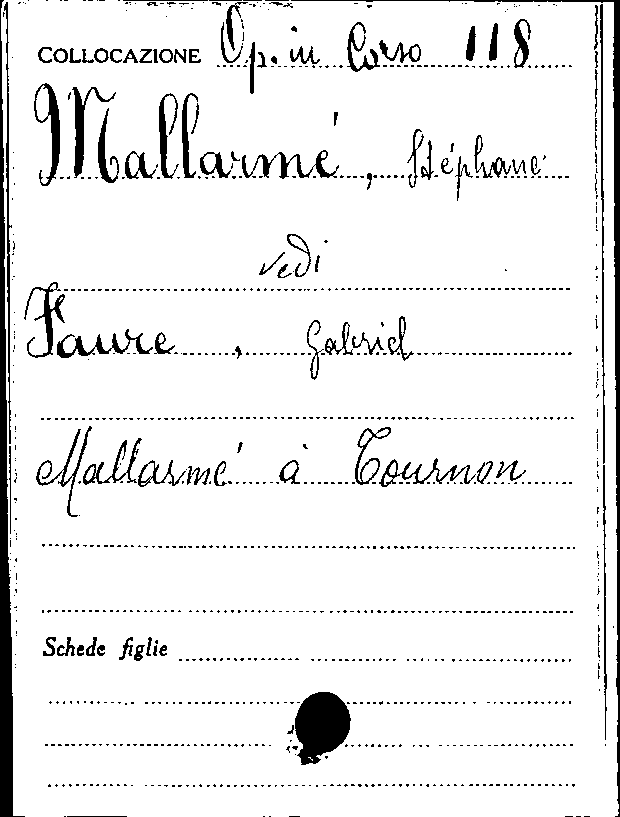 COLLOCAZIONE Op. in Corso 118
Mallarmé, Stéphane
vedi
Faure, Gabriel
Mallarmé à Tournon
Schede figlie